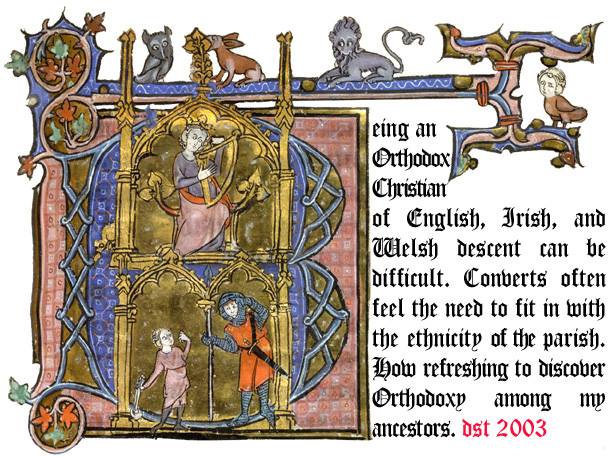 Being an
Orthodox
Christian
of English, Irish, and
Welsh descent can be
difficult. Converts often
feel the need to fit in with
the ethnicity of the parish.
How refreshing to discover
Orthodoxy among my
ancestors. dst 2003